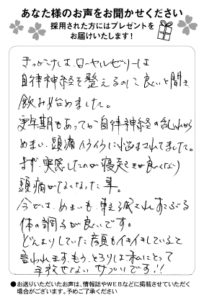 あなた様のお声をお聞かせください
採用された方にはプレゼントを
お届けいたします！
きっかけは、ローヤルゼリーは
自律神経を整えるのに良いと聞き
飲み始めました。
更年期もあってか自律神経の乱れから
めまい、頭痛、イライラに悩まされてました。
まず実感したのが寝起きが良くなり
頭痛がなくなった事。
今では、めまいも軽減されすこぶる
体の調子が良いです。
どんよりしていた顔もイキイキしていると
言われます。もう、とろりは私にとって
手放せないサプリです!!
●お送りいただいたお声は、情報誌やWEBなどに掲載させていただく
場合がございます。予めご了承ください